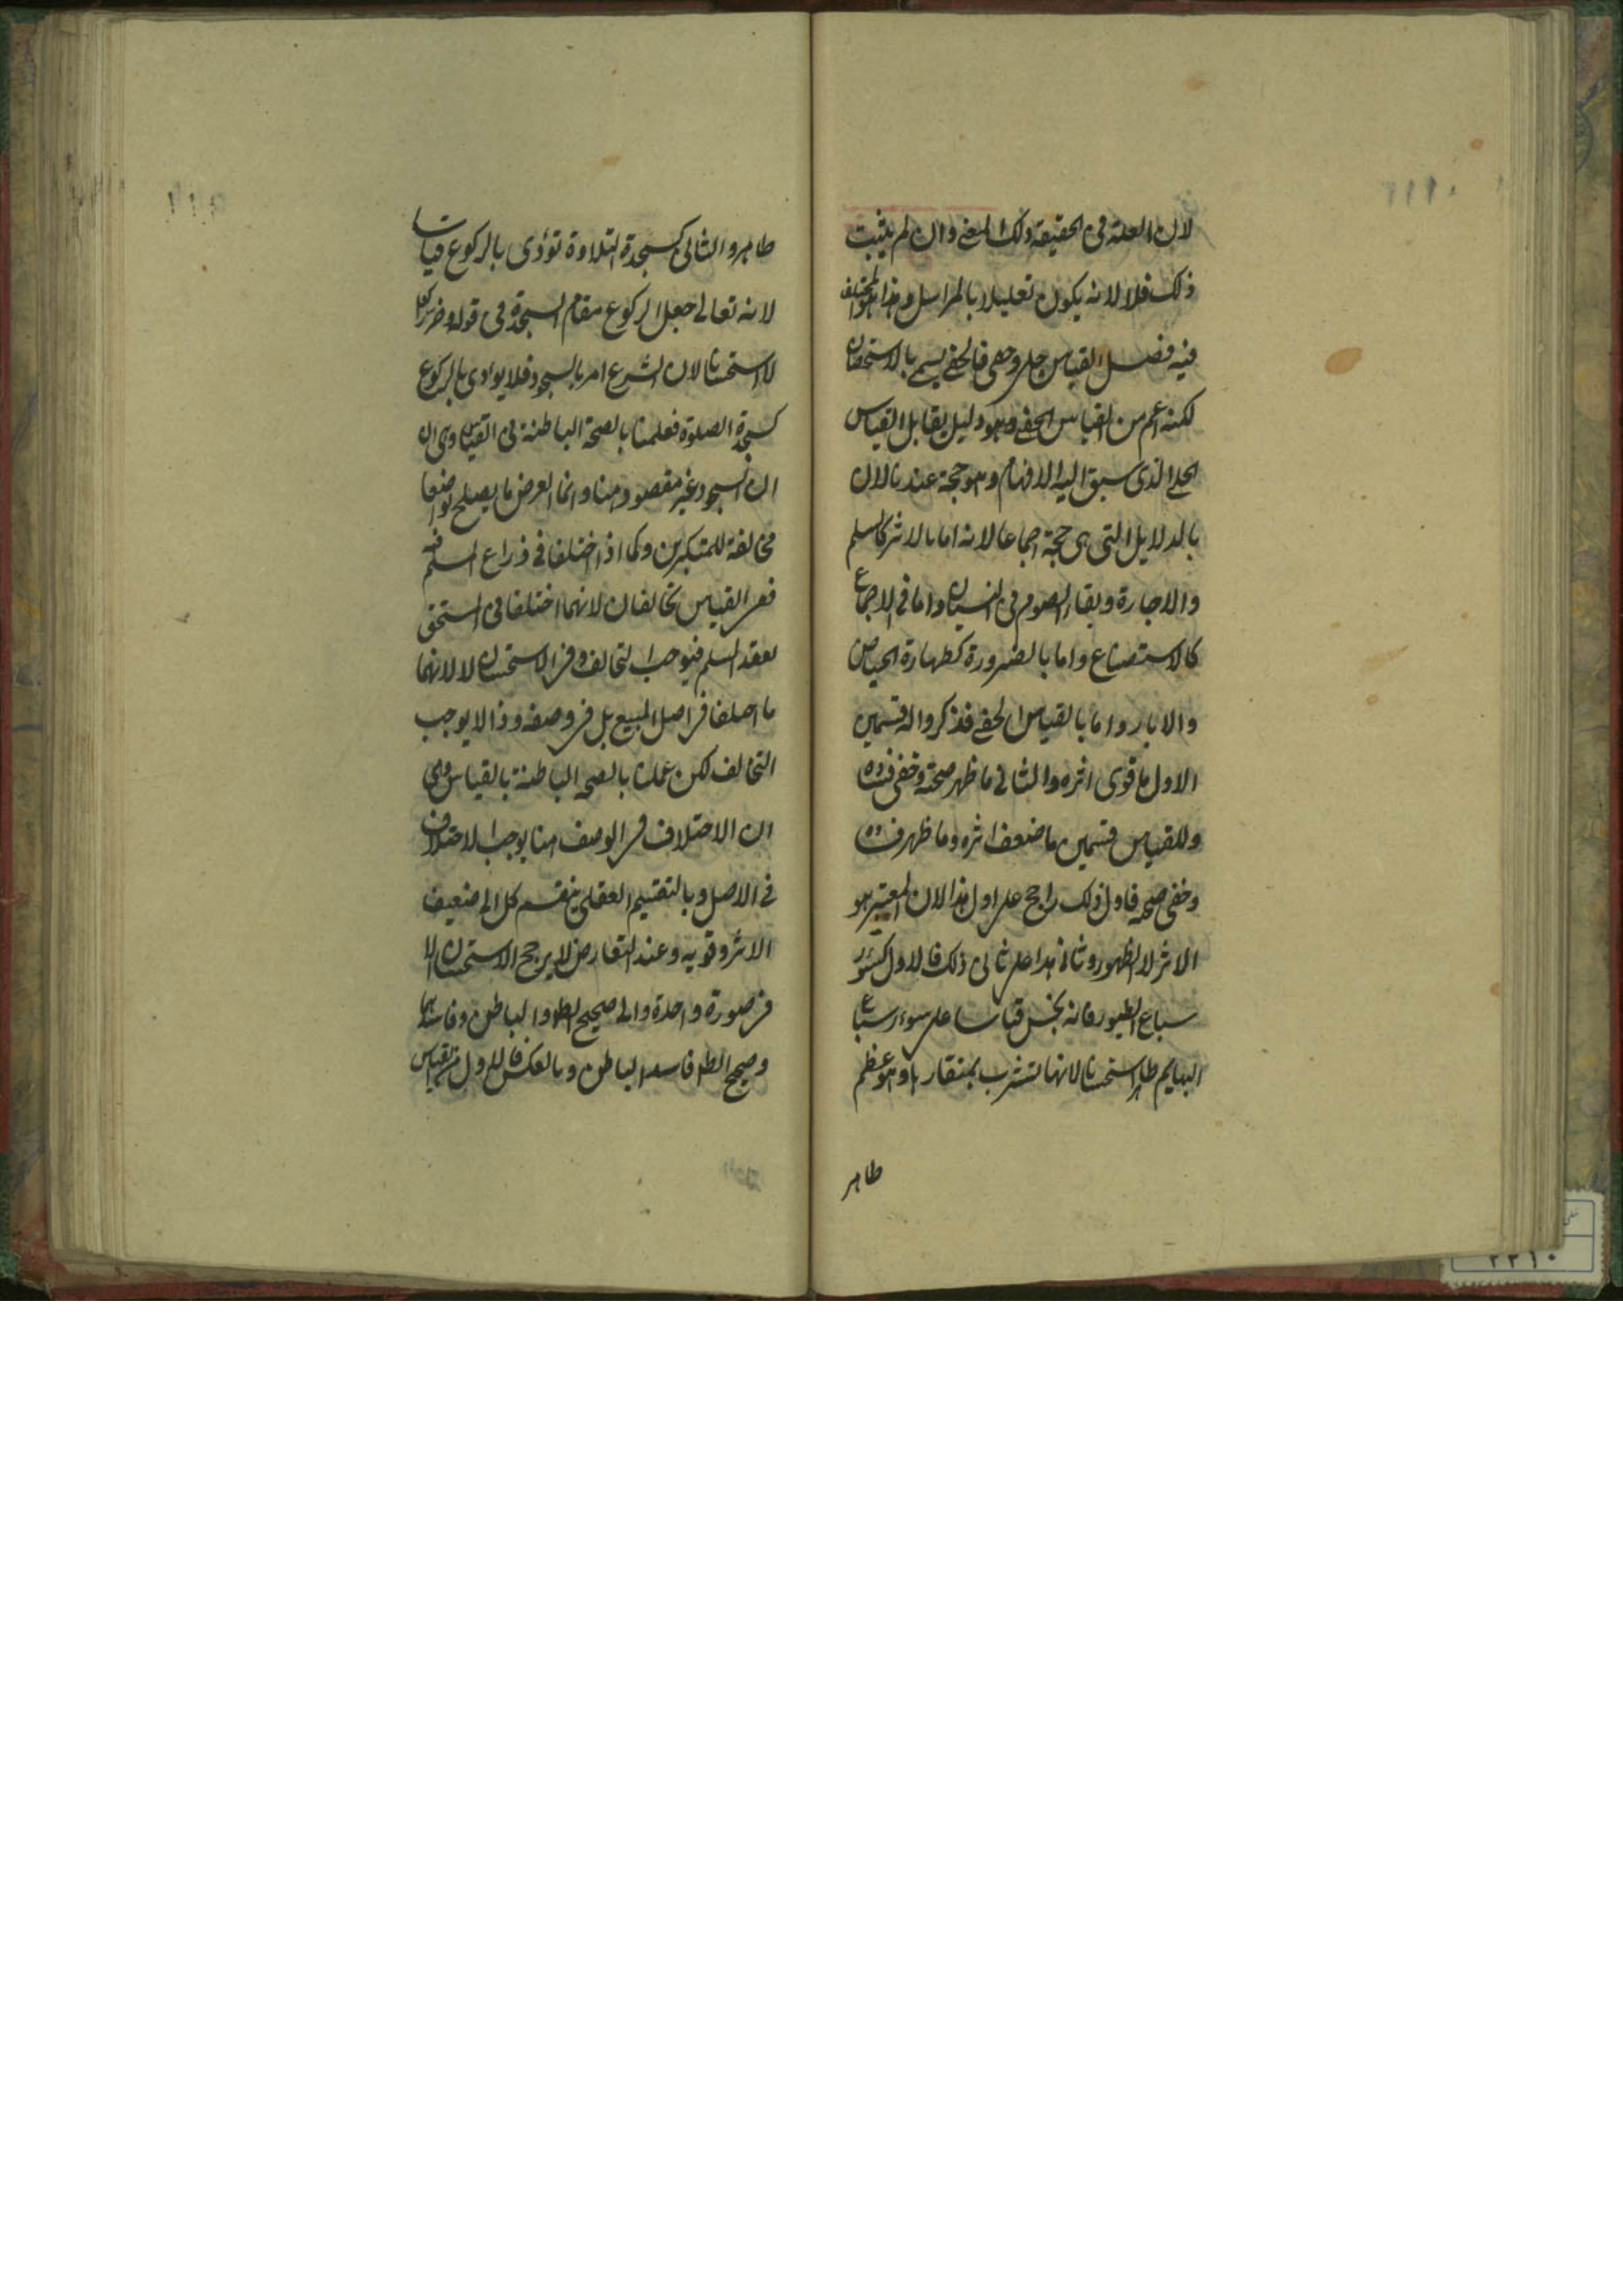 لان العلة فى الحقيقة ذلك المعنى وان لم يثبت
ذلك فلا لانه يكون تعليلا بالمراسل وهذا هو المختلف
فيه فصل القياس جلى وخفى فالخفى يسمى بالاستحسان
لكنه اعم من القياس الخفى وهو دليل يقابل القياس
الجلى الذى سبق اليه الافهام وهو حجة عندنا لان
بالدلايل التى هى حجة اجماعا لانه اما بالاثر كالسلم
والاجارة وبقاء الصوم فى النسيان واما فى الاجماع
كالاستصناع واما بالضرورة كطهارة الحياض
والابار واما بالقياس الخفى فذكروا له قسمين
الاول ما قوى اثره والثانى ما ظهر صحته وخفى فساده
وللقياس قسمين ما ضعف اثره وما ظهر فساده
وخفى صحته فاول ذلك راجح على اول هذا لان المعتبر هو
الاثر لا الظهور وثانى هذا على ثانى ذلك فالاول كسؤر
سباع الطيور فانه نجس قياسا على سوءر سباع
البهايم طاهر استحسانا لانها تشرب بمنقارها وهو عظم
طاهر
طاهر والثانى كسجدة التلاوة تؤدى بالركوع قياسا
لانه تعالى جعل الركوع مقام السجدة فى قوله وخر راكعا
لا استحسانا لان الشرع امر بالسجود فلا يوادى بالركوع
كسجدة الصلوة فعلمنا بالصحة الباطنة فى القياس وهى ان
ان السجود غير مقصود هنا وانما الغرض ما يصلح تواضعا
مخالفة للمتكبرين وكما اذا اختلفا فى ذراع المسلم فيه
ففى القياس تخالفان لانهما اختلفا فى المستحق
بعقد السلم فيوجب التخالف وفى الاستحسان لا لانهما
ما اختلفا فى اصل المبيع بل فى وصفه وذا لا يوجب
التخالف لكن عملنا بالصحة الباطنة بالقياس وهى
ان الاختلاف فى الوصف هنا يوجب الاختلاف
فى الاصل وبالتقسيم العقلى ينقسم كل الى ضعيف
الاثر وقويه وعند التعارض لا يرجح الاستحسان الا
فى صورة واحدة والى صحيح الظاهر والباطن وفاسدهما
وصحيح الظاهر فاسد الباطن وبالعكس فالاول من القياس
٢٢١٠